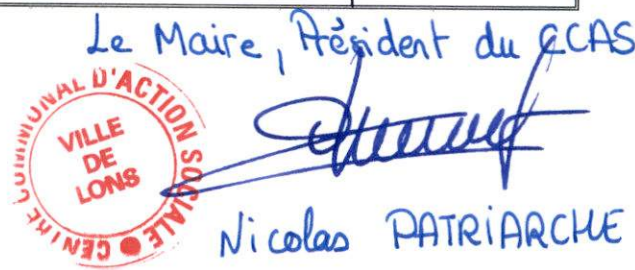 Le Maire, Président du CCAS
CENTRE COMMUNAL D'ACTION SOCIALE
VILLE
DE
LONS
Nicolas PATRIARCHE